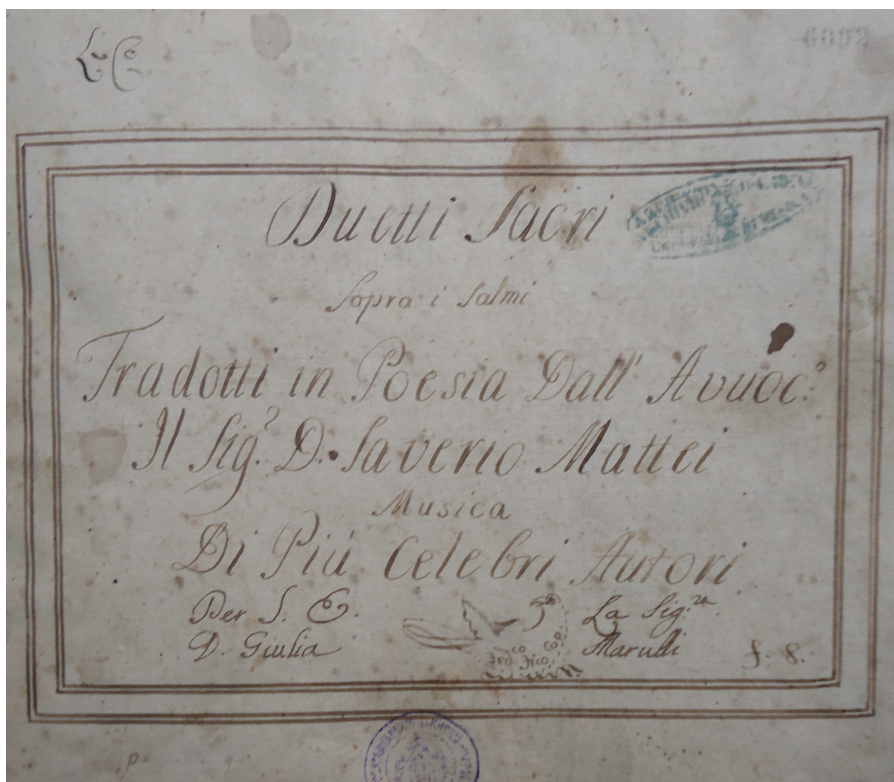 L. C.
6092
Duetti Sacri
Sopra i Salmi
Tradotti in Poesia Dall' Avuoc.º
Il Sig.r D. Saverio Mattei
Musica
Di Piú Celebri Autori
Per S. E. La Sig.ra
D. Giulia Marulli f. 8.